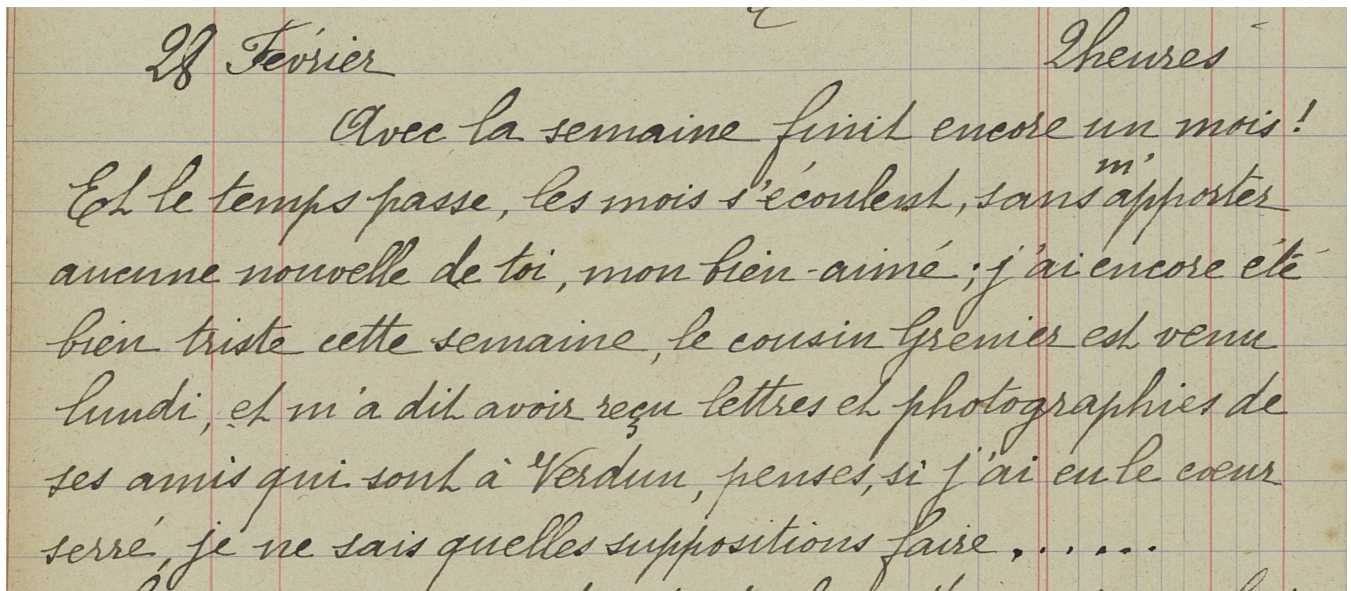 28 Février 2heures
Avec la semaine finit encore un mois!
Et le temps passe, les mois s'écoulent, sans m'apporter
aucune nouvelle de toi, mon bien-aimé; j'ai encore été
bien triste cette semaine, le cousin Grenier est venu
lundi, et m'a dit avoir reçu lettres et photographies de
ses amis qui sont à Verdun, penses, si j'ai eu le cœur
serré, je ne sais quelles suppositions faire......